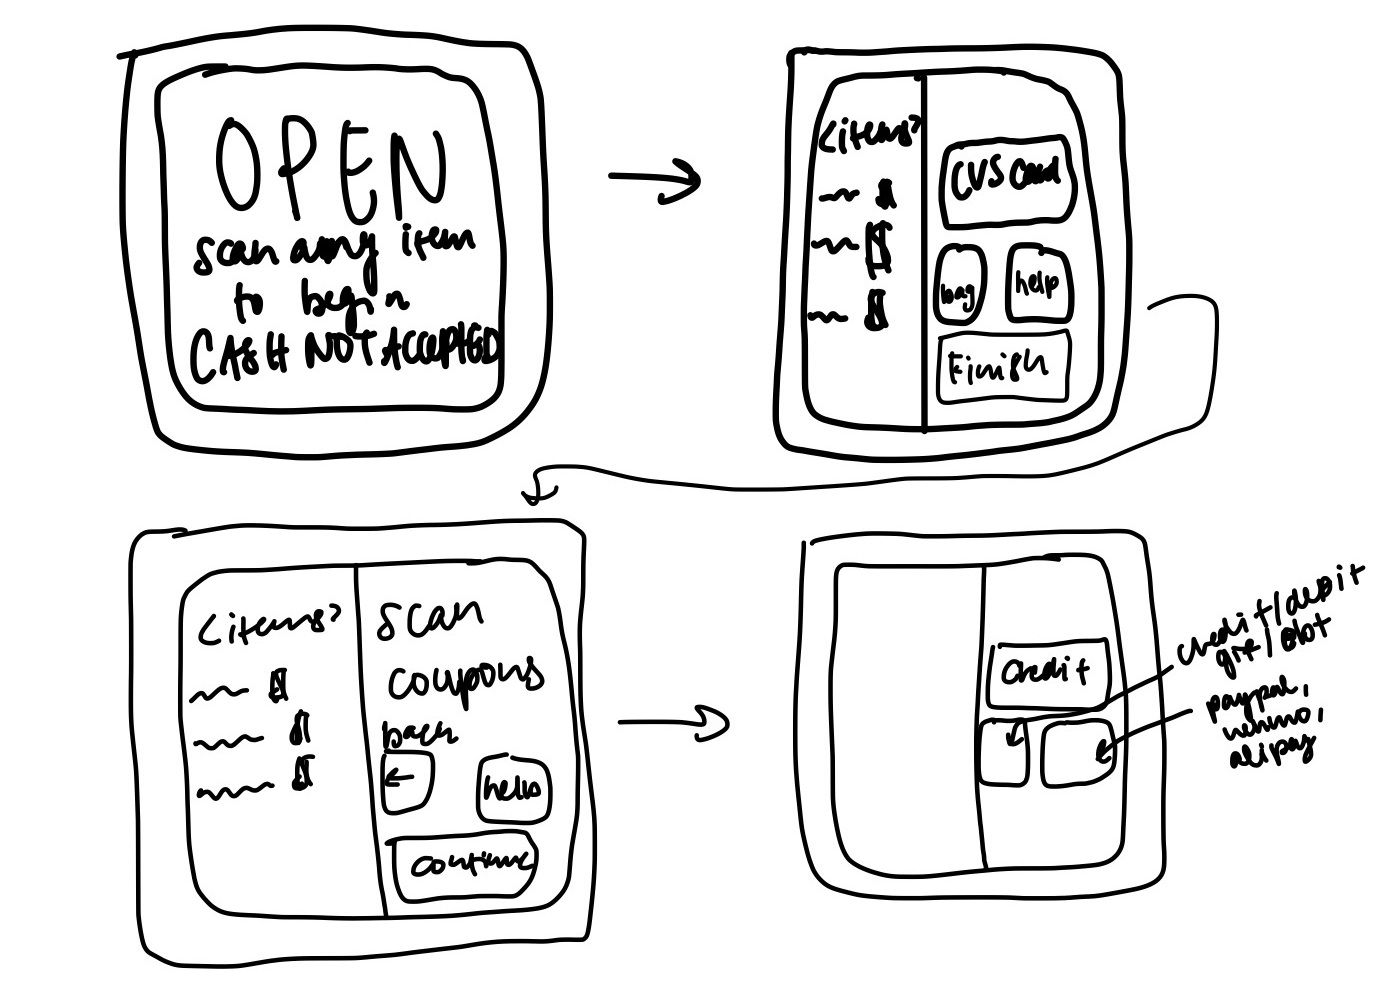 OPEN
scan any item
to begin
CASH NOT ACCEPTED
<items>
$
$
$
CVS Card
bag
help
Finish
<items>
$
$
$
scan
coupons
back
←
help
continue
credit
credit/debit
gif/ebt
paypal,
venmo,
alipay